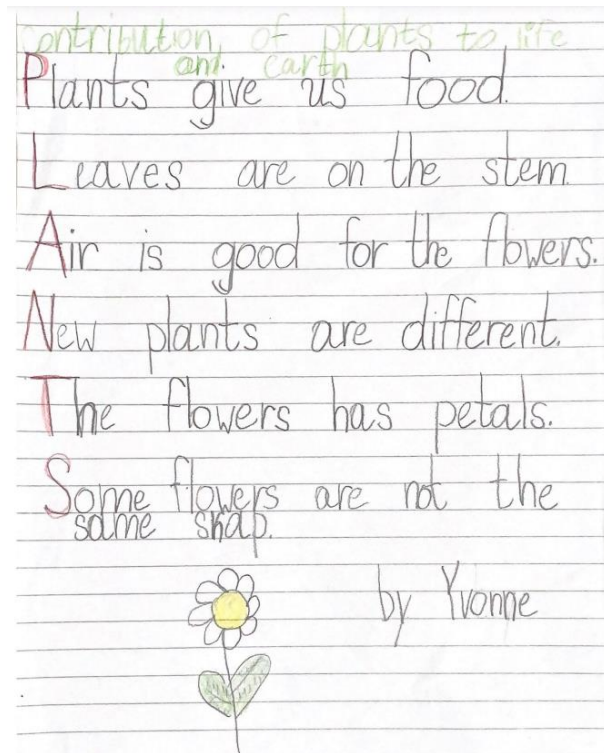 contribution of plants to life
and earth
Plants give us food.
Leaves are on the stem.
Air is good for the flowers.
New plants are different.
The flowers has petals.
Some flowers are not the
same shap.
by Yvonne